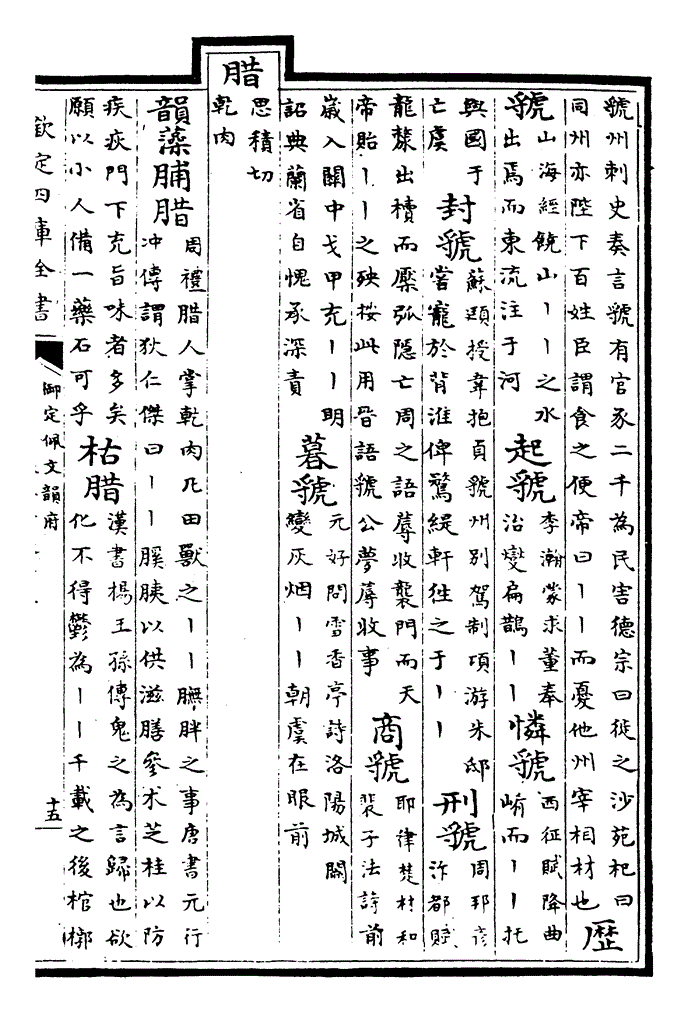 虢州刺史奏言虢有官豕二千為民害德宗曰徙之沙苑杞曰
同州亦陛下百姓臣謂食之便帝曰丨丨而憂他州宰相材也 歴
虢 山海經饒山丨丨之水
出焉而東流注于河 起虢 李瀚蒙求董奉
治燮扁鵲丨丨 憐虢 西征賦降曲
崤而丨丨托
與國于
亡虞 封虢 蘇頲授韋抱貞虢州別駕制項游朱邸
嘗寵於背淮俾驚緹軒往之于丨丨 刑虢 周邦彦
汴都賦
龍漦出櫝而檿弧隠亡周之語蓐收襲門而天
帝貽丨丨之殃按此用晉語虢公夢蓐收事 商虢 耶律楚材和
裴子法詩前
嵗入關中戈甲充丨丨明
詔典蘭省自愧承深責 暮虢 元好問雪香亭詩洛陽城闕
變灰烟丨丨朝虞在眼前
腊
思積切
乾肉
韻藻脯腊 周禮腊人掌乾肉凡田獸之丨丨膴胖之事唐書元行
冲傳謂狄仁傑曰丨丨膎胰以供滋膳參术芝桂以防
疾疢門下充旨味者多矣
願以小人備一藥石可乎 枯腊 漢書楊王孫傳鬼之為言歸也欲
化不得鬱為丨丨千載之後棺槨
欽定四庫全書
御定佩文韻府
十五